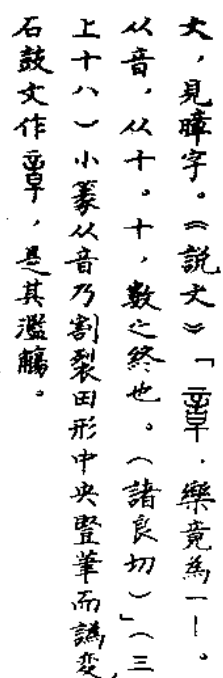 文，見暲字。《說文》「章．樂竟為一｜。
从音，从十。十，數之終也。（諸良切）」（三
上十八）小篆从音乃割裂田形中央豎筆而譌变，
石鼓文作章，是其濫觴。